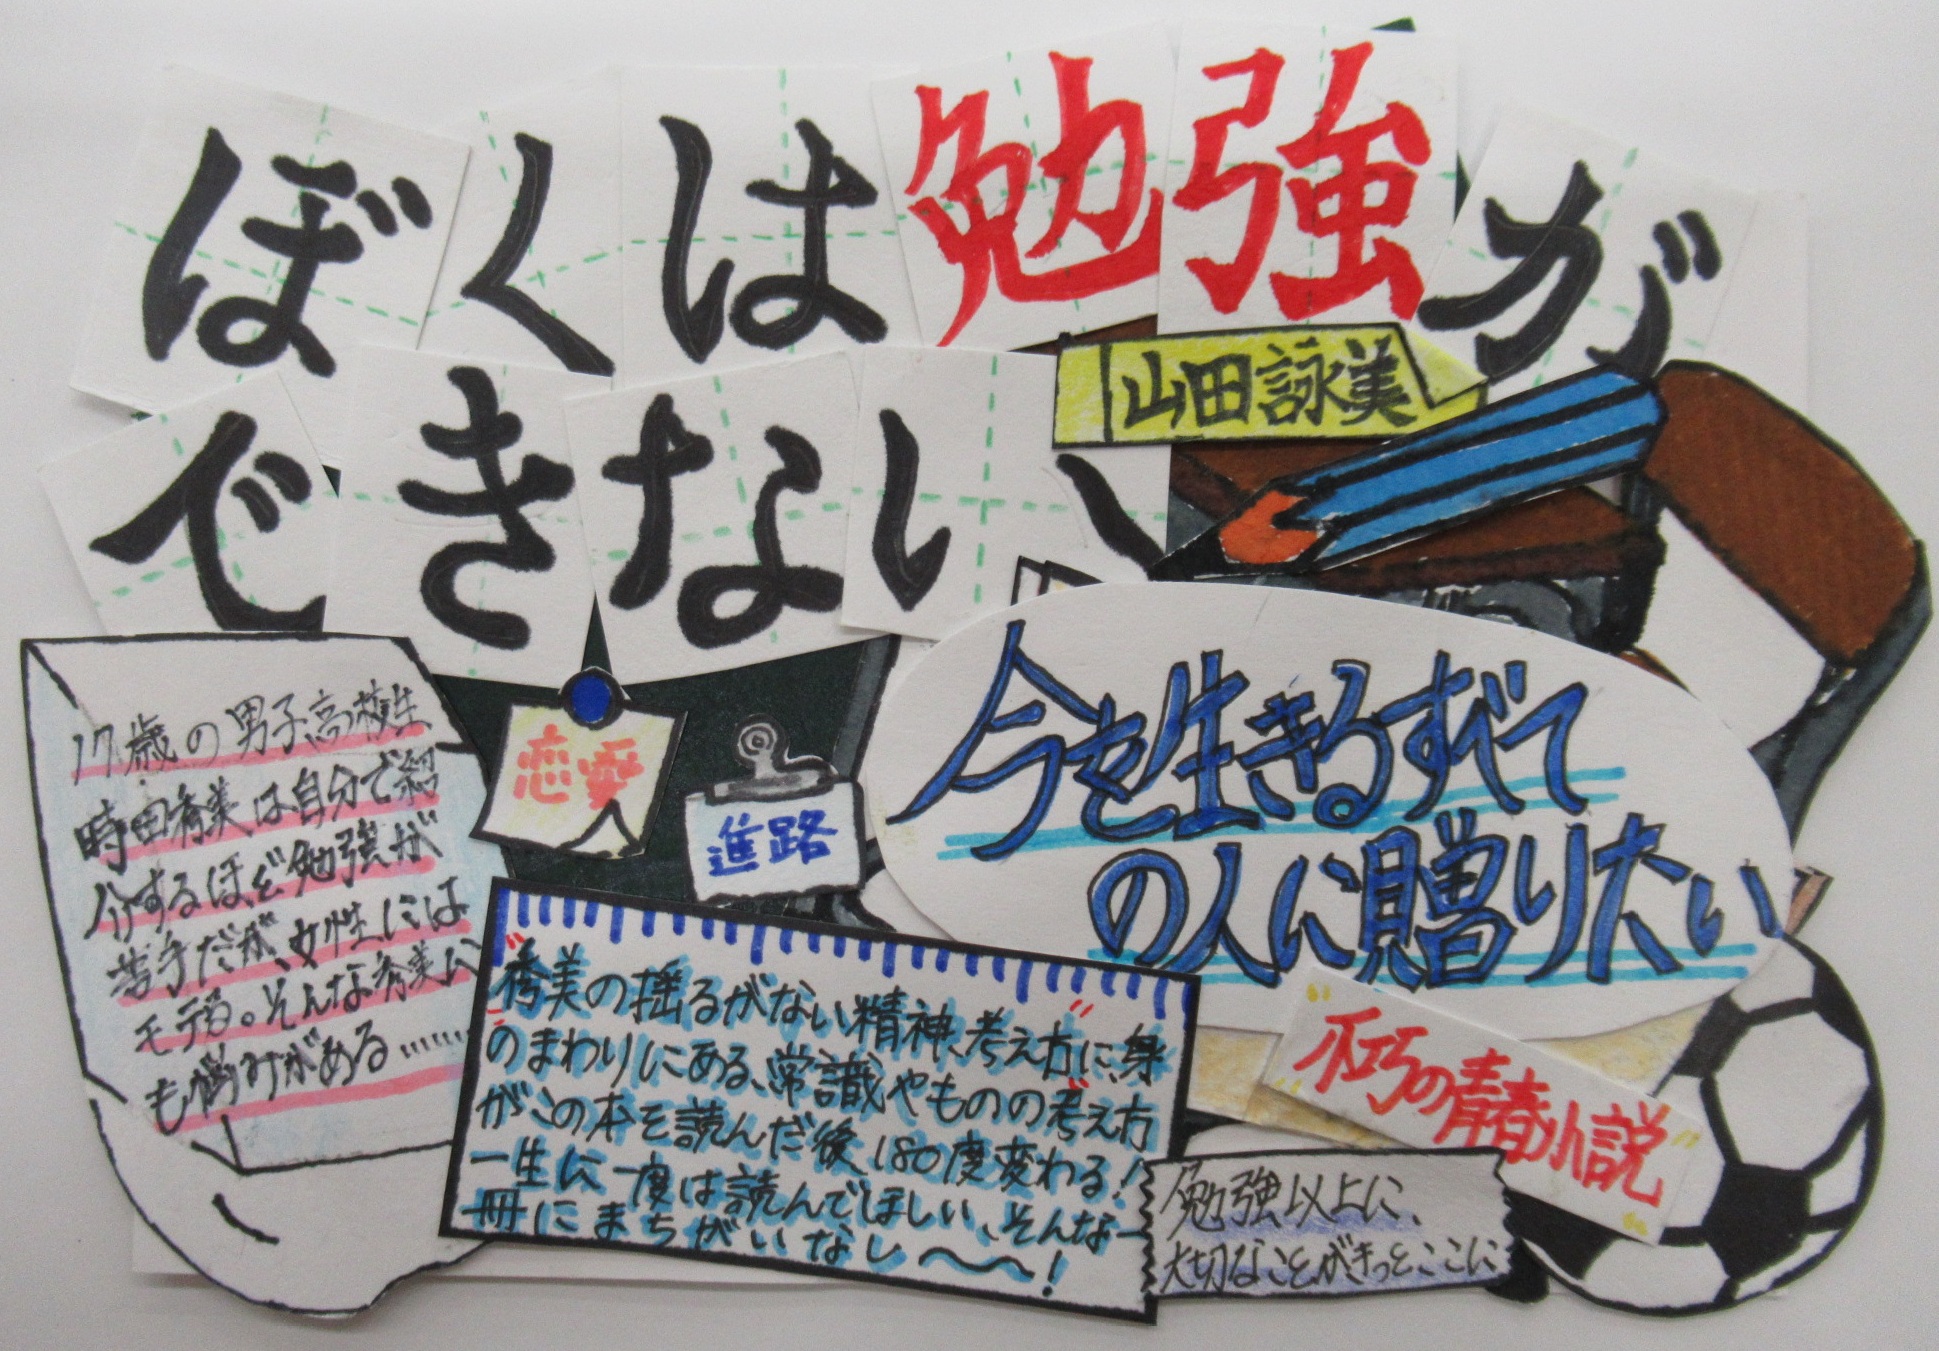 ぼくは勉強が
できない
山田詠美
17歳の男子高校生
時田秀美は自分で紹
介するほど勉強が
苦手だが、女性には
モテる。そんな秀美に
も悩みがある……
恋愛
進路
今を生きるすべて
の人に贈りたい
"秀美の揺るがない精神、考え方"に、身
のまわりにある、常識やものの考え方
がこの本を読んだ後、180度変わる!
一生に一度は読んでほしい、そんな一
冊にまちがいなし〜〜!
"不朽の青春小説"
勉強以上に、
大切なことがきっとここに